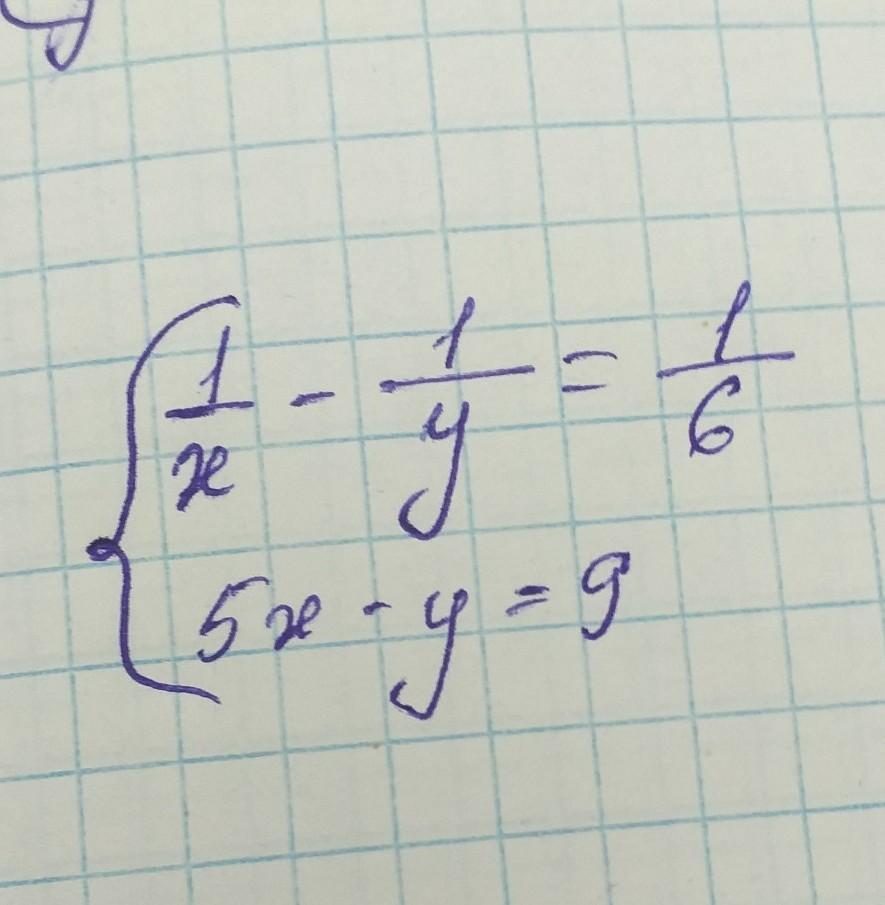 1/x - 1/y = 1/6
5x - y = 9